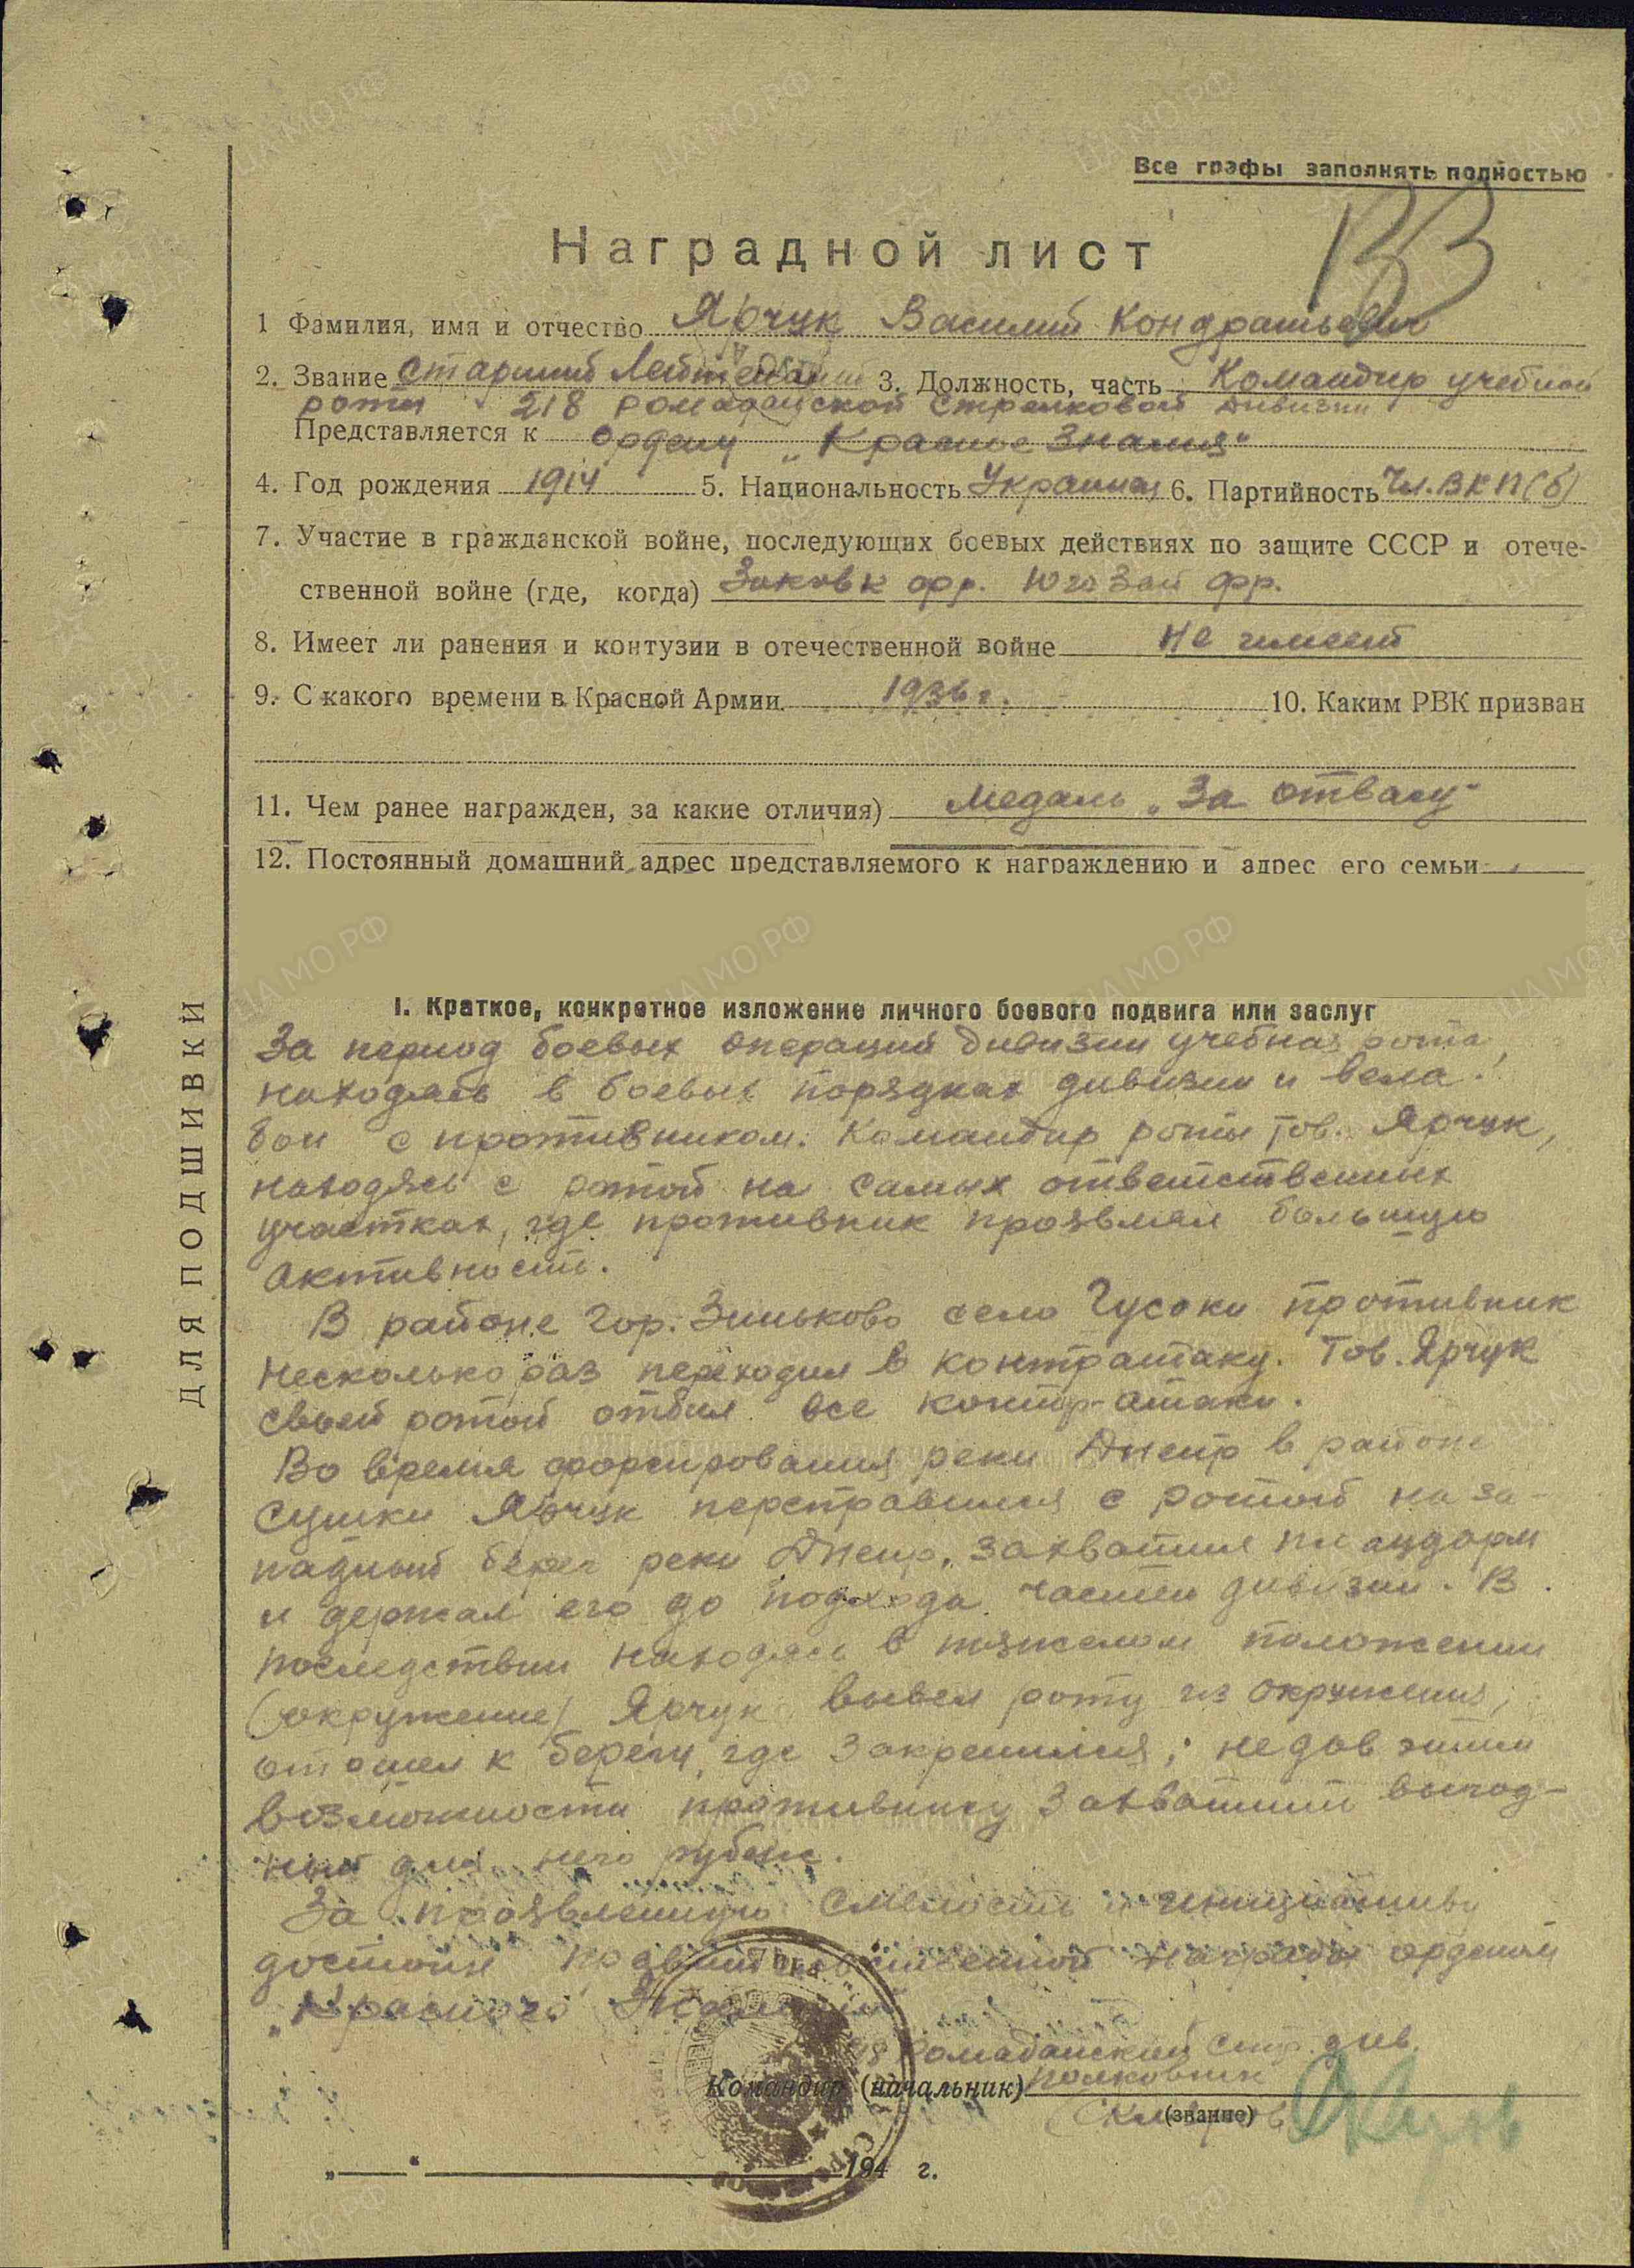 Все графы заполнять полностью
ВЗ
Наградной лист
1 Фамилия, имя и отчество Ярчук Василий Кондратьевич
2. Звание Старший Лейтенант 3. Должность, часть Командир учебной
роты 218 Ромаданской стрелковой дивизии
Представляется к ордену „Красное Знамя“
4. Год рождения 1914 5. Национальность Украинец 6. Партийность Чл. ВКП(б)
7. Участие в гражданской войне, последующих боевых действиях по защите СССР и отече-
ственной войне (где, когда) Закавк фр. Юго Зап фр.
8. Имеет ли ранения и контузии в отечественной войне не имеет
9. С какого времени в Красной Армии 1936 г. 10. Каким РВК призван
11. Чем ранее награжден, за какие отличия) Медаль „За отвагу“
12. Постоянный домашний адрес представляемого к награждению и адрес его семьи
I. Краткое, конкретное изложение личного боевого подвига или заслуг
За период боевых операций дивизии учебная рота,
находясь в боевых порядках дивизии и вела
бои с противником. Командир роты тов. Ярчук,
находясь с ротой на самых ответственных
участках, где противник проявлял большую
активность.
В районе гор. Зиньково село Чусоки противник
несколько раз переходил в контратаку. Тов. Ярчук
своей ротой отбил все контр-атаки.
Во время форсирования реки Днепр в районе
Сушки Ярчук переправился с ротой на за-
падный берег реки Днепр, захватил плацдарм
и держал его до подхода частей дивизии. В
последствии находясь в тяжелом положении
(окружение) Ярчук вывел роту из окружения,
отошел к берегу, где закрепился, не дав этим
возможности противнику захватить выгод-
ный для него рубеж.
За проявленную смелость и инициативу
достоин правительственной награды орденом
„Красного Знамени“
218 Ромаданской стр. див.
Командир (начальник) полковник
(звание)
Скляров
„ “ 194 г.
ДЛЯ ПОДШИВКИ
ЦАМО.РФ